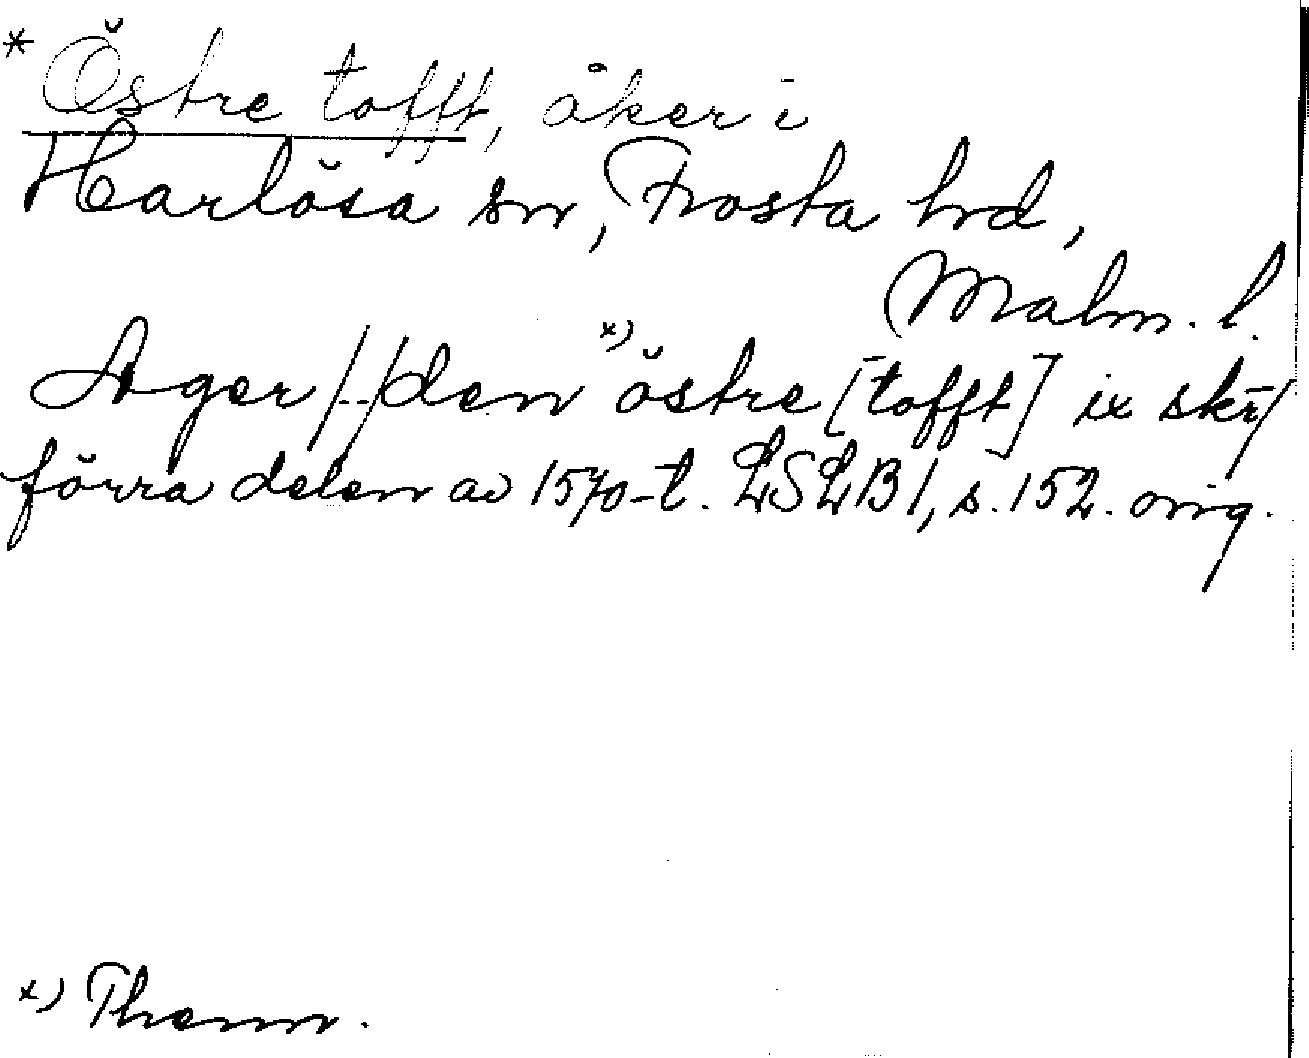 * Östre tofft, åker i
Harlösa sn, Frosta hrd,
Malm. l.
Ager /--/ den x) östre [tofft] ix skr/
förra delen av 1570-t. LSLB I, s. 152. orig.
x) Them.